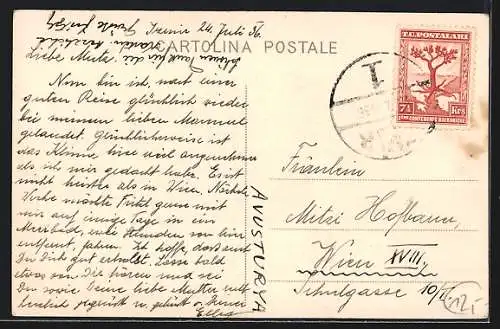 Izmir 24. Juli 36.
CARTOLINA POSTALE
Liebe Mutz,
Nun bin ich, nach einer
guten Reise glücklich wieder
bei meinem lieben Mannerl
gelandet. Glücklicherweise ist
das Klima hier viel angenehmer
als ich mir gedacht habe. Es ist
nicht heisser als in Wien. Nächste
Woche möchte Fritzl gerne mit
mir auf einige Tage in ein
Meerbad, ein Stunden von hier
entfernt, fahren. Ich hoffe, dass auch
Du Dich gut erholst. Lasse bald
etwas von Dir hören und sei
Du sowie Deine liebe Mutter recht
herzlich gegrüsst u. geküsst v. Deiner
AVUSTURYA
T.C. POSTALARI
7½ Krş
1
Fräulein
Mitzi Hofbauer,
Wien XVIII.
Schulgasse 10/II.
12.-